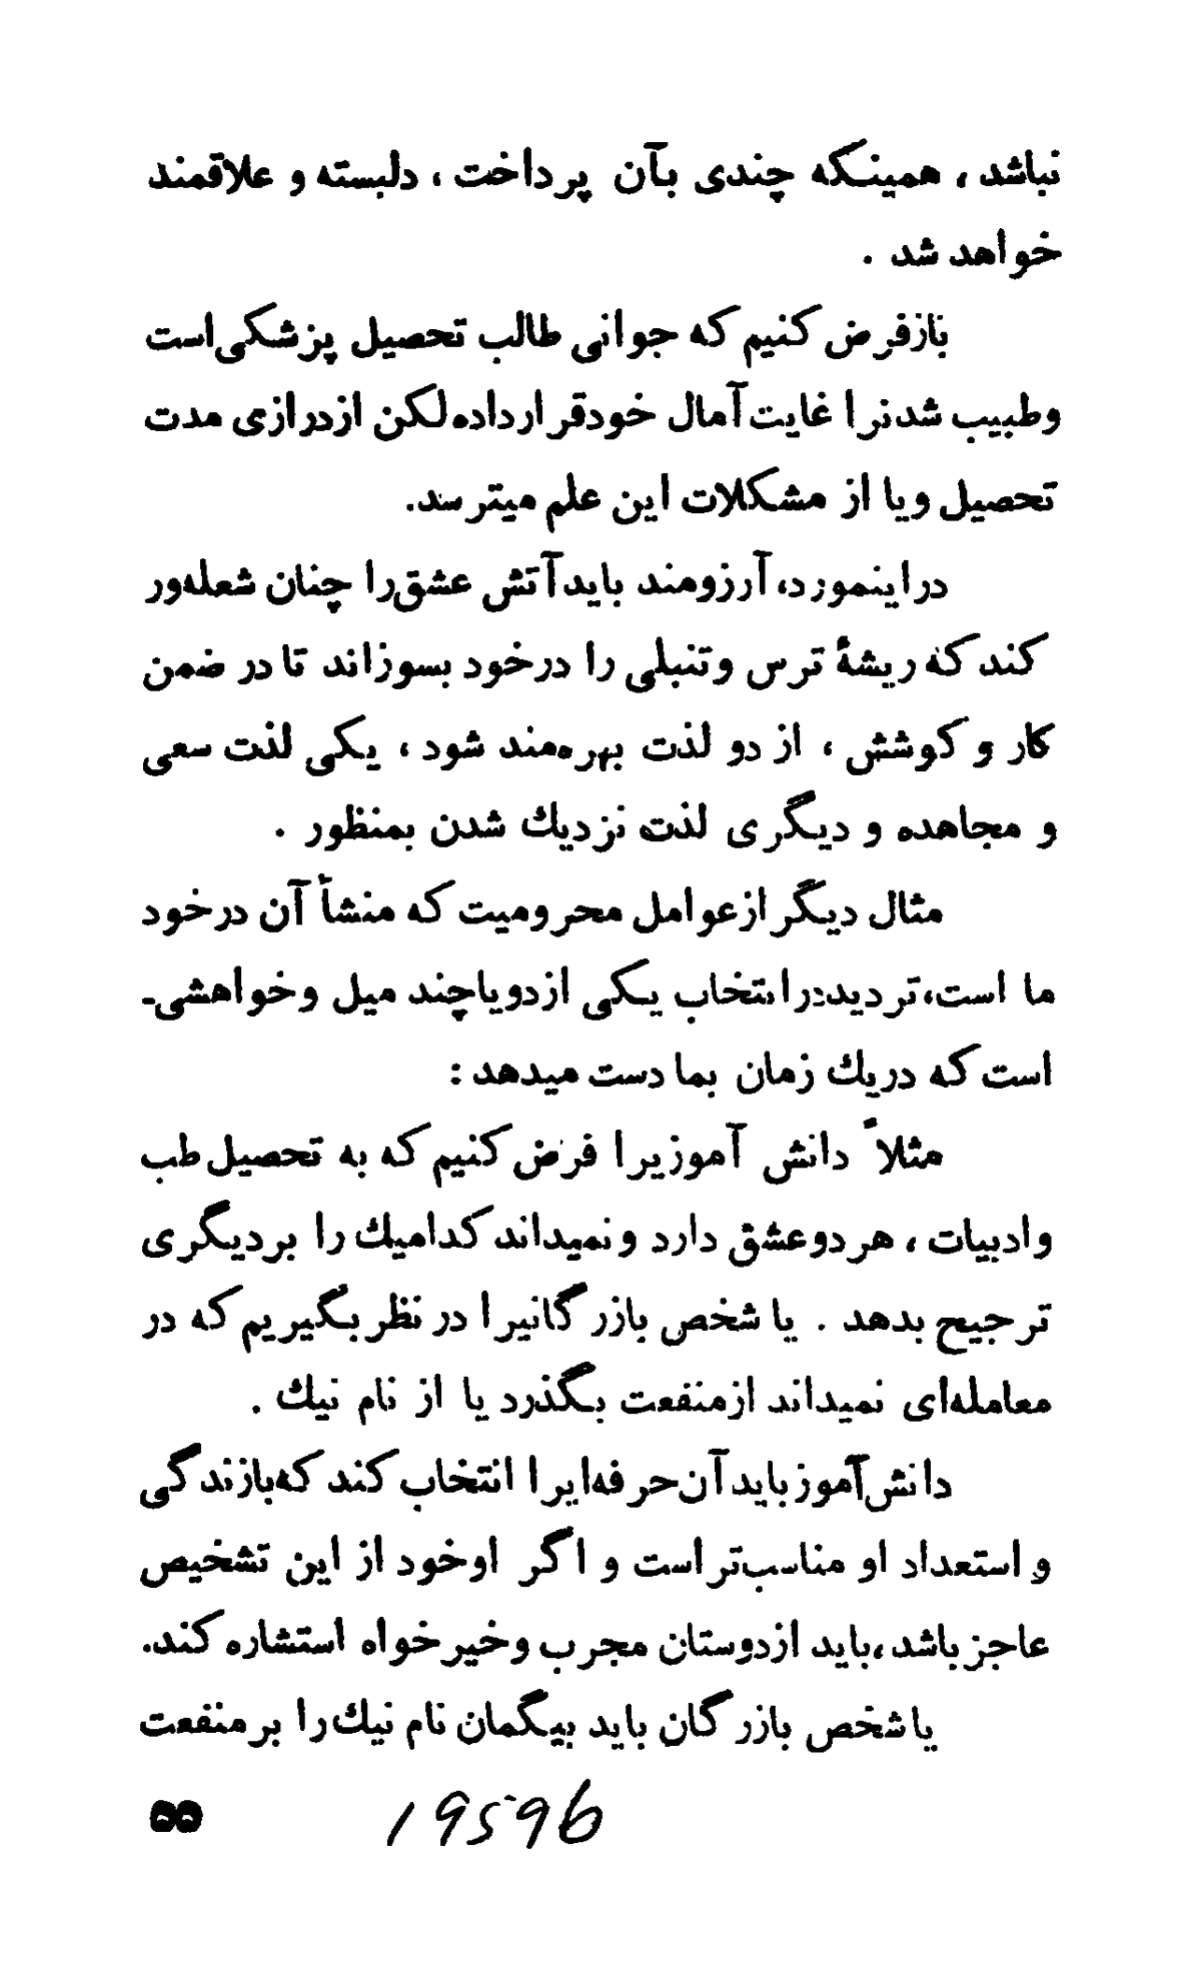 نباشد ، همینکه چندی بآن پرداخت ، دلبسته و علاقمند
خواهد شد .
بازفرض کنیم که جوانی طالب تحصیل پزشکی‌است
وطبیب شدنرا غایت‌آمال خودقرارداده‌لکن ازدرازی مدت
تحصیل ویا از مشکلات این علم میترسد.
دراینمورد، آرزومند باید‌آتش عشق‌را چنان شعله‌ور
کند که ریشهٔ ترس وتنبلی را درخود بسوزاند تا در ضمن
کار و کوشش ، از دو لذت بهره‌مند شود ، یکی لذت سعی
و مجاهده و دیگری لذت نزدیك شدن بمنظور .
مثال دیگر ازعوامل محرومیت که منشأ آن درخود
ما است، تردیددرانتخاب یکی ازدویاچند میل وخواهشی-
است که دریك زمان بما دست میدهد :
مثلاً دانش آموزیرا فرض کنیم که به تحصیل طب
وادبیات ، هردوعشق دارد ونمیداند کدامیك را بردیگری
ترجیح بدهد . یا شخص بازرگانیرا در نظر بگیریم که در
معامله‌ای نمیداند ازمنفعت بگذرد یا از نام نیك .
دانش‌آموز باید‌آن‌حرفه‌ایرا انتخاب کند که‌بازندگی
و استعداد او مناسب‌تر است و اگر اوخود از این تشخیص
عاجز باشد ،باید ازدوستان مجرب وخیرخواه استشاره کند.
یا شخص بازرگان باید بیگمان نام نیك‌را بر منفعت
۵۵
19596